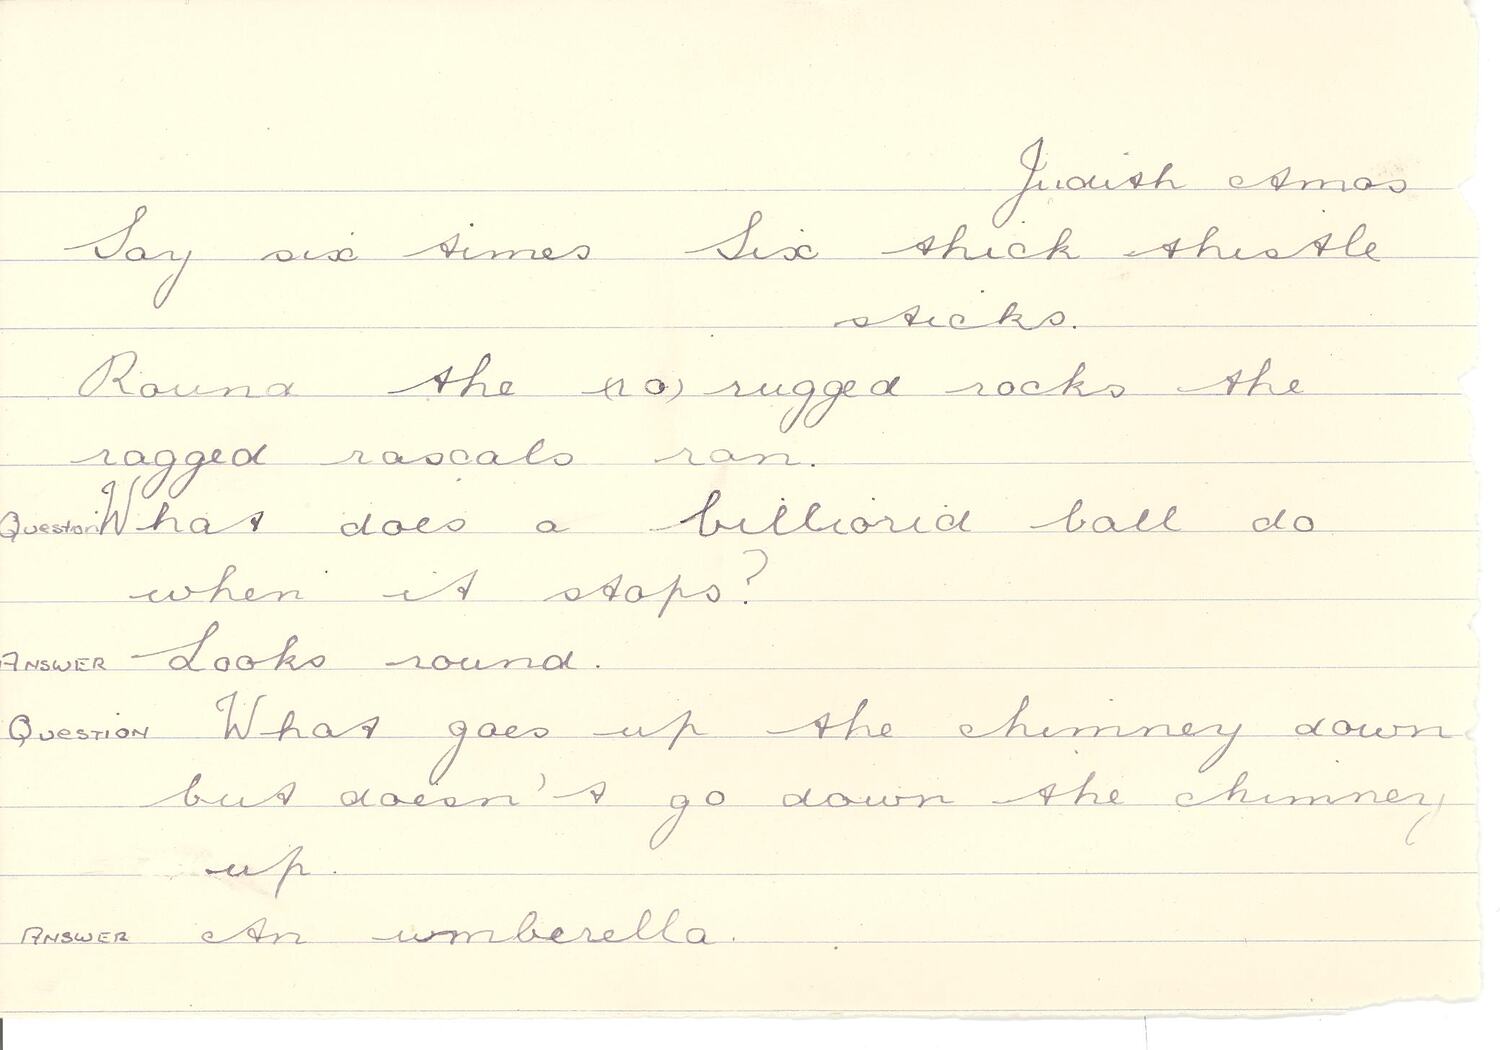 Judith Amos
Say six times Six thick thistle
sticks.
Round the (ro) rugged rocks the
ragged rascals ran.
Question What does a billiorid ball do
when it stops?
ANSWER Looks round.
QUESTION What goes up the chimney down
but doesn't go down the chimney
up.
ANSWER An umberella.